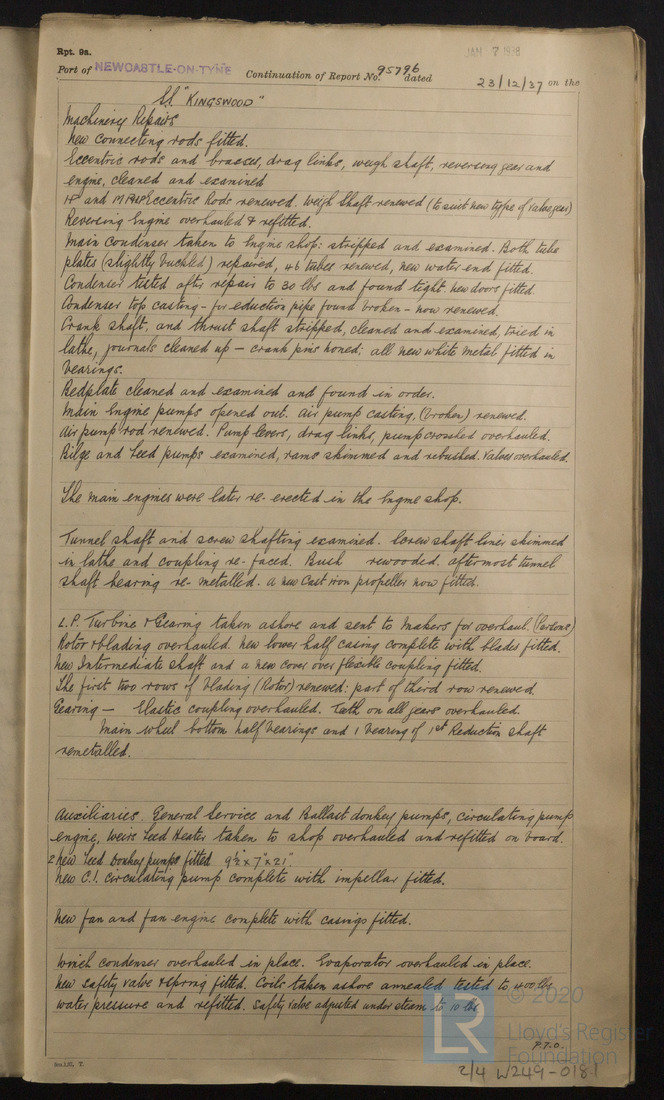 Rpt. 9a.
JAN 7 1938
Port of NEWCASTLE-ON-TYNE Continuation of Report No. 95796 dated 23/12/37 on the
"KINGSWOOD"
Machinery Repairs
New connecting rods fitted.
Eccentric rods and brasses, drag links, weigh shaft, reversing gear and
engine, cleaned and examined
HP and MP Eccentric Rods renewed. Weigh Shaft renewed (to suit new type of valve gear)
Reversing Engine overhauled & refitted.
Main condenser taken to Engine shop: stripped and examined. Both tube
plates (slightly buckled) repaired, 46 tubes renewed, new water end fitted.
Condenser tested after repair to 30 lbs and found tight new doors fitted.
Condenser top casting - for eduction pipe found broken - now renewed.
Crank shaft, and thrust shaft stripped, cleaned and examined, tried in
lathe, journals cleaned up - crank pins honed; all new white metal fitted in
bearings.
Bedplate cleaned and examined and found in order.
Main Engine pumps opened out. Air pump casting, (broken) renewed.
Air pump rod renewed. Pump levers, drag links, pump crosshead overhauled.
Bilge and feed pumps examined, rams skimmed and rebushed. Valves overhauled.
The main engines were later re-erected in the Engine shop.
Tunnel shaft and screw shafting examined. Screw shaft liner skimmed
in lathe and coupling re-faced. Bush rewooded. Aftermost tunnel
shaft bearing re-metalled. A new Cast iron propeller now fitted.
L.P. Turbine & Gearing taken ashore and sent to Makers for overhaul. (Parsons)
Rotor & blading overhauled. New lower half casing complete with blades fitted.
New Intermediate shaft and a new cover over flexible coupling fitted.
The first two rows of blading (Rotor) renewed: part of third row renewed
Gearing - Elastic coupling overhauled. Teeth on all gears overhauled
Main wheel bottom half bearings and 1 bearing of 1st Reduction shaft
remetalled.
Auxiliaries. General Service and Ballast donkey pumps, circulating pump
engine, Weirs Feed Heater taken to shop overhauled and refitted on board.
2 New Feed Donkey pumps fitted 9½" x 7" x 21".
New C.I. circulating pump complete with impellar fitted.
New fan and fan engine complete with casings fitted.
Winch condenser overhauled in place. Evaporator overhauled in place.
New safety valve & spring fitted. Coils taken ashore annealed tested to 400 lbs
water pressure and refitted. Safety valve adjusted under steam to 10 lbs
P.T.O.
LR
© 2020
Lloyd's Register
Foundation
2/4 W249-0181